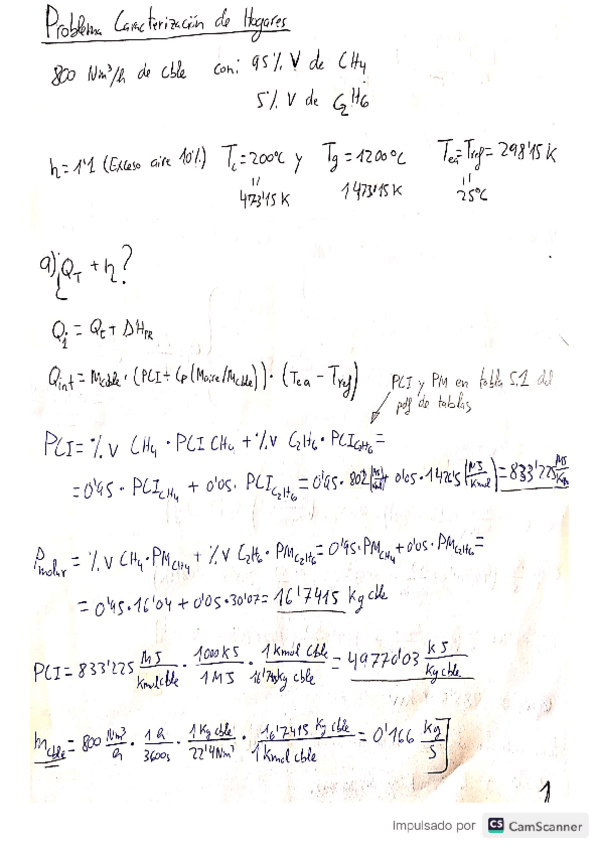 Problema Caracterización de Hogares
800 Nm³/h de cble con: 95% V de CH₄
5% V de C₂H₆
n=1'1 (Exceso aire 10%) Tc=200ºC y Tg=1200ºC Tea=Tref=298'15 K
" "
473'15 K 1473'15 K 25ºC
a) ¿QT + η?
Qi = Qt + ΔHPR
Qint = Mcble·(PCI + Cp(Maire/Mcble))·(Tea - Tref)
PCI y PM en tabla 5.1 del
pdf de tablas
PCI = %V CH₄ · PCI CH₄ + %V C₂H₆ · PCI C₂H₆ =
= 0'95 · PCI CH₄ + 0'05 · PCI C₂H₆ = 0'95 · 802 + 0'05 · 1426'5 (MJ/Kmol) = 833'225 MJ/
Pmolar = %V CH₄ · PM CH₄ + %V C₂H₆ · PM C₂H₆ = 0'95 · PM CH₄ + 0'05 · PM C₂H₆ =
= 0'95 · 16'04 + 0'05 · 30'07 = 16'7415 Kg cble
PCI = 833'225 MJ/Kmol cble · 1000 KJ/1 MJ · 1 Kmol cble/16'7415 Kg cble = 49770'03 KJ/Kg cble
ṁcble = 800 Nm³/h · 1 h/3600 s · 1 Kg cble/22'4 Nm³ · 16'7415 Kg cble/1 Kmol cble = 0'166 Kg/s
1
Impulsado por CS CamScanner